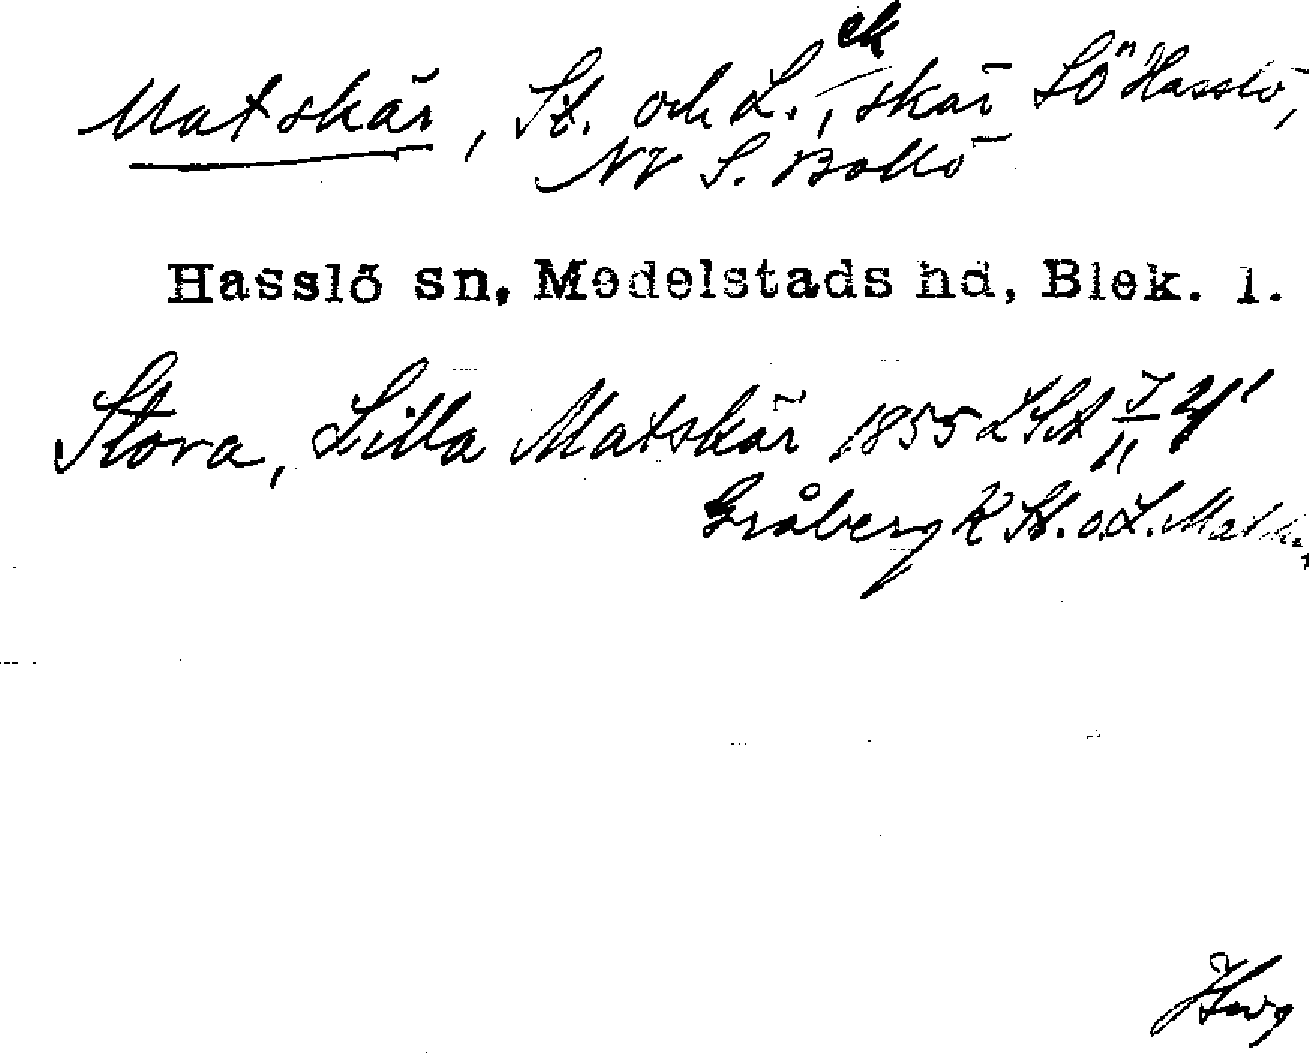 ek
Matskär, St. och L., skär SÖ Hasslö,
NV S. Bollö
Hasslö sn, Medelstads hd, Blek. l.
Stora, Lilla Matskär 1855 LSA
Gråberg K St. o. L.